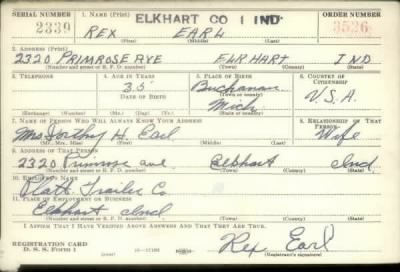 SERIAL NUMBER 1. NAME (Print) ELKHART CO 1 IND. ORDER NUMBER
2339 REX EARL 3526
(First) (Middle) (Last)
2. ADDRESS (Print)
2320 PRIMROSE AVE ELKHART IND
(Number and street or R. F. D. number) (Town) (County) (State)
3. TELEPHONE 4. AGE IN YEARS 5. PLACE OF BIRTH 6. COUNTRY OF CITIZENSHIP
35 Buchanan
(Town or county)
Mich U.S.A.
(Exchange) (Number) (Mo.) (Day) (Yr.) (State or country)
7. NAME OF PERSON WHO WILL ALWAYS KNOW YOUR ADDRESS 8. RELATIONSHIP OF THAT PERSON
Mrs Dorthy H. Earl Wife
(Mr., Mrs., Miss) (First) (Middle) (Last)
9. ADDRESS OF THAT PERSON
2320 Primrose ave Elkhart Ind.
(Number and street or R. F. D. number) (Town) (County) (State)
10. EMPLOYER'S NAME
Platt Trailer Co
11. PLACE OF EMPLOYMENT OR BUSINESS
Elkhart Ind
(Number and street or R. F. D. number) (Town) (County) (State)
I AFFIRM THAT I HAVE VERIFIED ABOVE ANSWERS AND THAT THEY ARE TRUE.
REGISTRATION CARD
D. S. S. FORM 1 Rex Earl
(Registrant's signature)